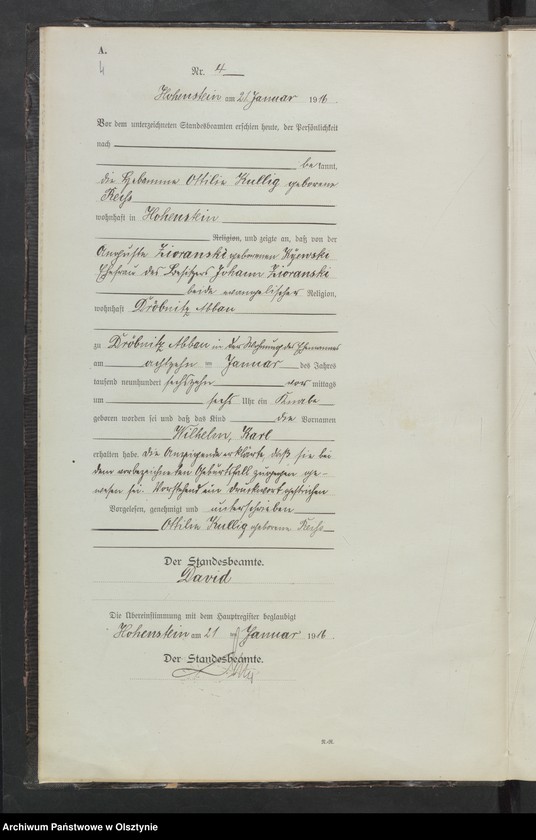 A.
4
Nr. 4
Hohenstein am 21. Januar 1916.
Vor dem unterzeichneten Standesbeamten erschien heute, der Persönlichkeit
nach
bekannt,
die Hebamme Ottilie Kullig geborene
Reiß
wohnhaft in Hohenstein
Religion, und zeigte an, daß von der
Auguste Zioranski geborenen
Ehefrau des Besitzers Johann Zioranski
beide evangelischer Religion,
wohnhaft Dröbnitz Abbau
zu Dröbnitz Abbau in der Wohnung des Ehemannes
am achtzehn = Januar des Jahres
tausend neunhundert sechszehn vor mittags
um sechs Uhr ein Knabe
geboren worden sei und daß das Kind die Vornamen
Wilhelm, Karl
erhalten habe. Die Anzeigende erklärte, daß sie bei
dem vorbezeichneten Geburtsfall zugegen ge-
wesen sei. Vorstehend ein Druckwort gestrichen
Vorgelesen, genehmigt und unterschrieben
Ottilie Kullig geborene Reiß
Der Standesbeamte.
David
Die Übereinstimmung mit dem Hauptregister beglaubigt
Hohenstein am 21 Januar 1916.
Der Standesbeamte.
Archiwum Państwowe w Olsztynie